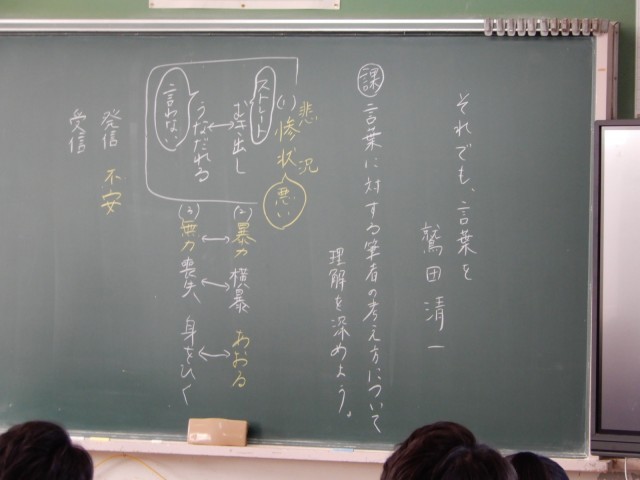 それでも、言葉を
鷲田清一
課 言葉に対する筆者の考え方について
理解を深めよう。
悲況
(1)惨状 悪い
ストレート
むき出し
言わない
うなだれる
(2)暴力 横暴 あおる
(3)無力 喪失 身をひく
発信 不安
受信